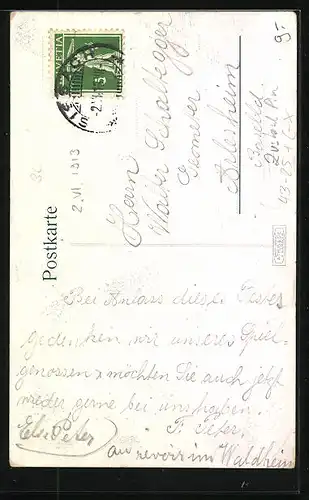 HELVETIA
5
2. VI. 13
Postkarte
2 VI 1313
Herrn
Walter Schaltegger
Geometer
Arlesheim
9.-
Bei Anlass dieses Festes
gedenken wir unseres Spiel-
genossen & möchten Sie auch jetzt
wieder gerne bei uns haben.
F. Liefer.
Els. Peter
au revoir im Waldheim